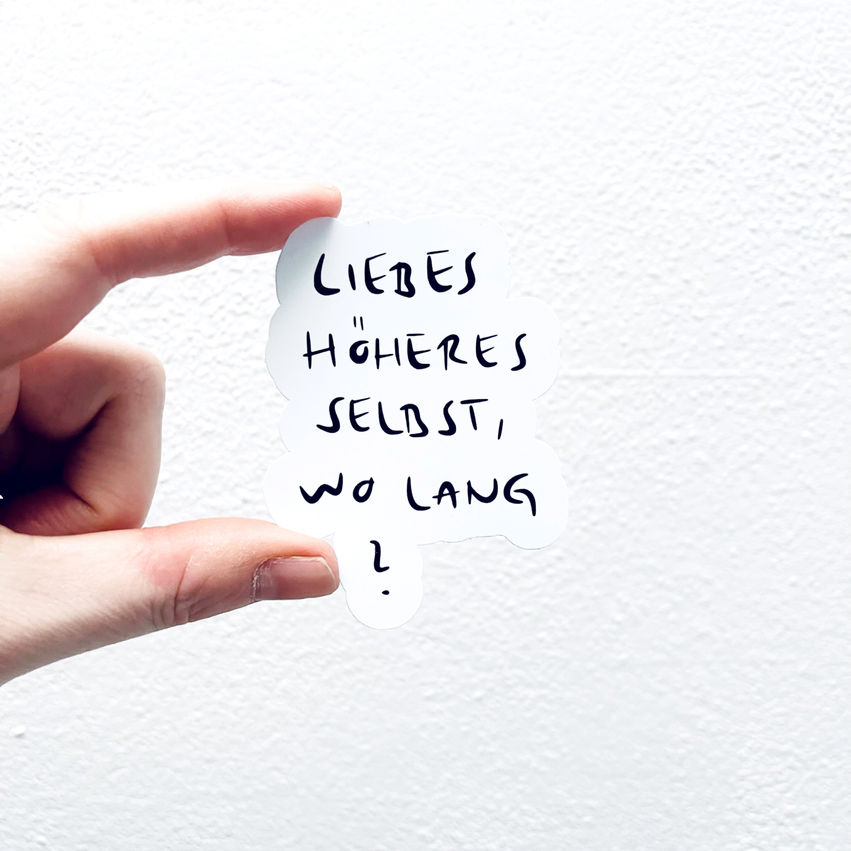 LIEBES
HÖHERES
SELBST,
WO LANG
?